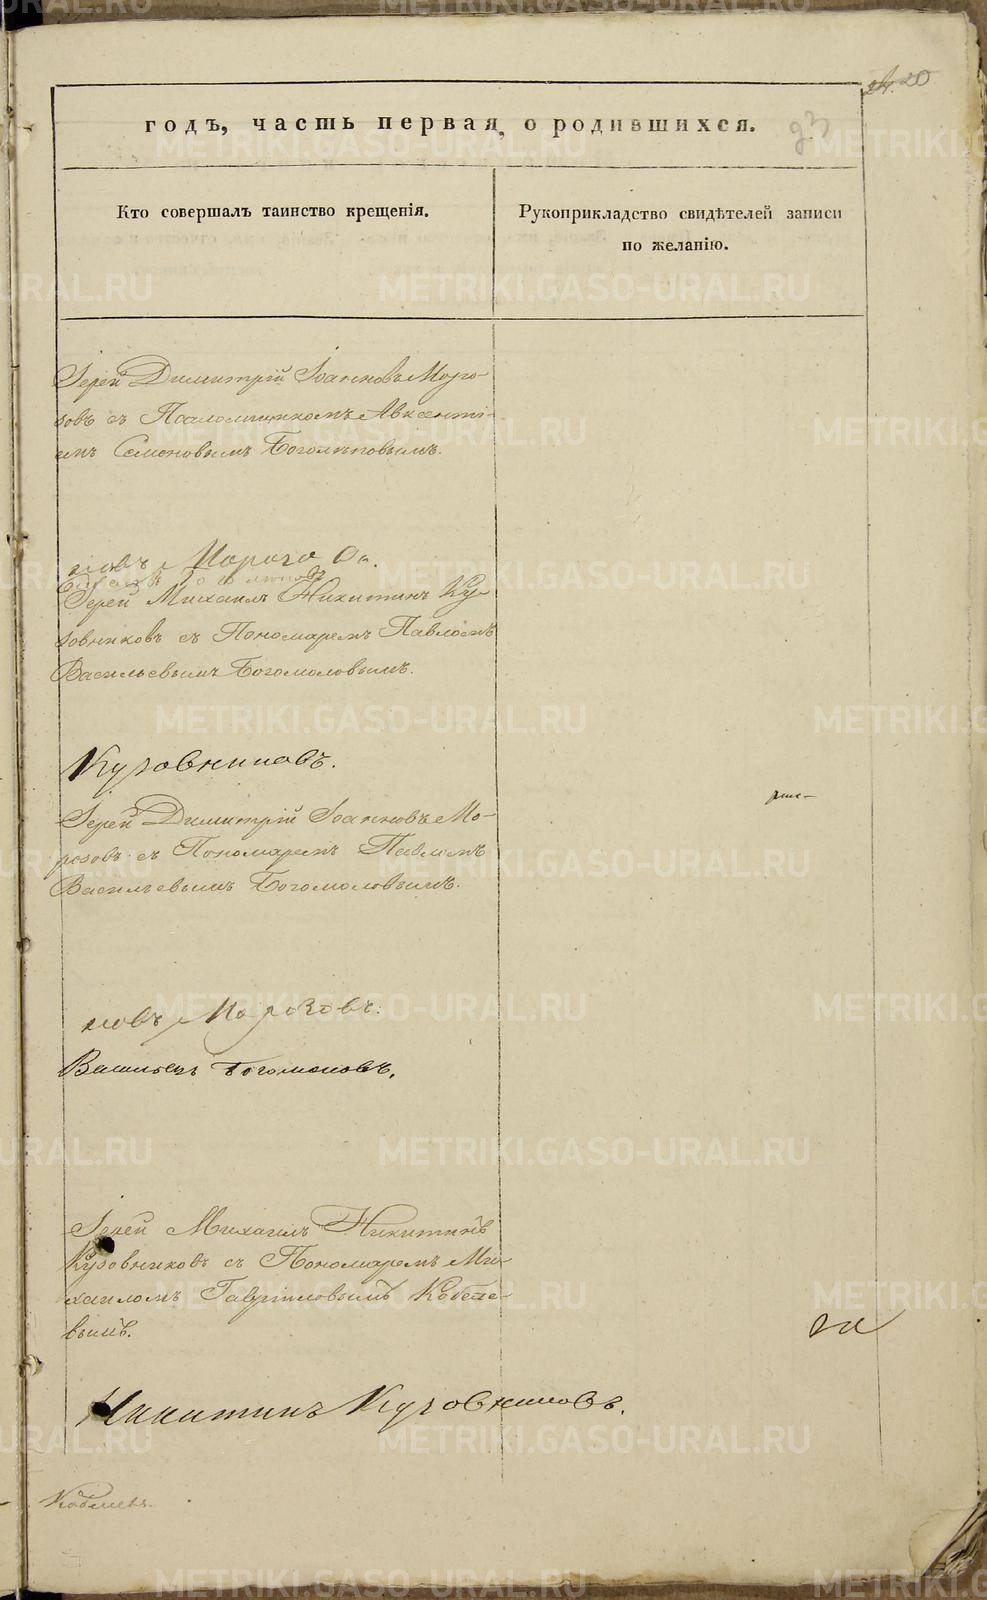 20
годъ, часть первая, о родившихся.
23
Кто совершалъ таинство крещенія.
Рукоприкладство свидѣтелей записи
по желанію.
Іерей Димитрій Іоанновъ Моро-
зовъ съ Псаломщикомъ Авксенті-
емъ Семеновымъ Боголѣповымъ.
новъ
Іерей Михаилъ Никитинъ Ку-
зовниковъ съ Пономаремъ Павломъ
Васильевымъ Богомоловымъ.
Кузовниковъ.
Іерей Димитрій Іоанновъ Мо-
розовъ съ Пономаремъ Павломъ
Васильевымъ Богомоловымъ.
новъ Морозовъ.
Васильевъ Богомоловъ.
Іерей Михаилъ Никитинъ
Кузовниковъ съ Пономаремъ Ми-
хаиломъ Гавріиловымъ Кобеле-
вымъ.
Никитинъ Кузовниковъ.
METRIKI.GASO-URAL.RU